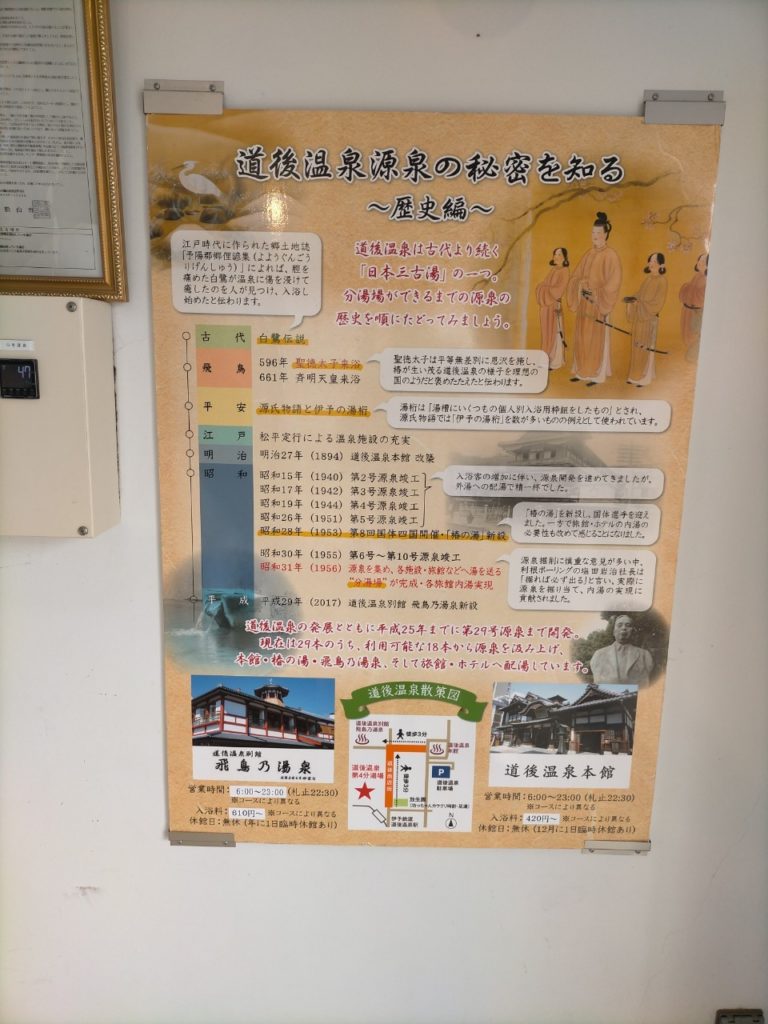 道後温泉源泉の秘密を知る
～歴史編～
江戸時代に作られた郷土地誌
「予陽郡郷俚諺集(よようぐんごう
りげんしゅう)」によれば、脛を
痛めた白鷺が温泉に傷を浸けて
癒したのを人が見つけ、入浴し
始めたと伝わります。
道後温泉は古代より続く
「日本三古湯」の一つ。
分湯場ができるまでの源泉の
歴史を順にたどってみましょう。
古代 白鷺伝説
飛鳥 596年 聖徳太子来浴
661年 斉明天皇来浴
聖徳太子は平等無差別に恩沢を施し、
椿が生い茂る道後温泉の様子を理想の
国のようだと褒めたたえたと伝わります。
平安 源氏物語と伊予の湯桁
湯桁は「湯槽にいくつもの個人別入浴用枠組をしたもの」とされ、
源氏物語では「伊予の湯桁」を数が多いものの例えとして使われています。
江戸 松平定行による温泉施設の充実
明治 明治27年(1894) 道後温泉本館 改築
昭和 昭和15年(1940) 第2号源泉竣工
昭和17年(1942) 第3号源泉竣工
昭和19年(1944) 第4号源泉竣工
昭和26年(1951) 第5号源泉竣工
入浴客の増加に伴い、源泉開発を進めてきましたが、
外湯への配湯で精一杯でした。
昭和28年(1953) 第8回国体四国開催・「椿の湯」新設
「椿の湯」を新設し、国体選手を迎え
ました。一方で旅館・ホテルの内湯の
必要性も改めて感じることになりました。
昭和30年(1955) 第6号～第10号源泉竣工
昭和31年(1956) 源泉を集め、各施設・旅館などへ湯を送る
"分湯場"が完成・各旅館内湯実現
源泉掘削に慎重な意見が多い中、
利根ボーリングの塩田岩治社長は
「掘れば必ず出る」と言い、実際に
源泉を掘り当て、内湯の実現に
貢献されました。
平成 平成29年(2017) 道後温泉別館 飛鳥乃湯泉新設
道後温泉の発展とともに平成25年までに第29号源泉まで開発。
現在は29本のうち、利用可能な18本から源泉を汲み上げ、
本館・椿の湯・飛鳥乃湯泉、そして旅館・ホテルへ配湯しています。
道後温泉別館
飛鳥乃湯泉
営業時間：6:00～23:00(札止22:30)
※コースにより異なる
入浴料：610円～ ※コースにより異なる
休館日：無休(年に1日臨時休館あり)
道後温泉散策図
道後温泉別館
飛鳥乃湯泉
徒歩3分
道後温泉
本館
道後温泉
第4分湯場
道後商店街
徒歩3分
P
道後温泉
駐車場
放生園
(坊っちゃんカラクリ時計・足湯)
伊予鉄道
道後温泉駅
N
道後温泉本館
営業時間：6:00～23:00(札止22:30)
※コースにより異なる
入浴料：420円～ ※コースにより異なる
休館日：無休(12月に1日臨時休館あり)